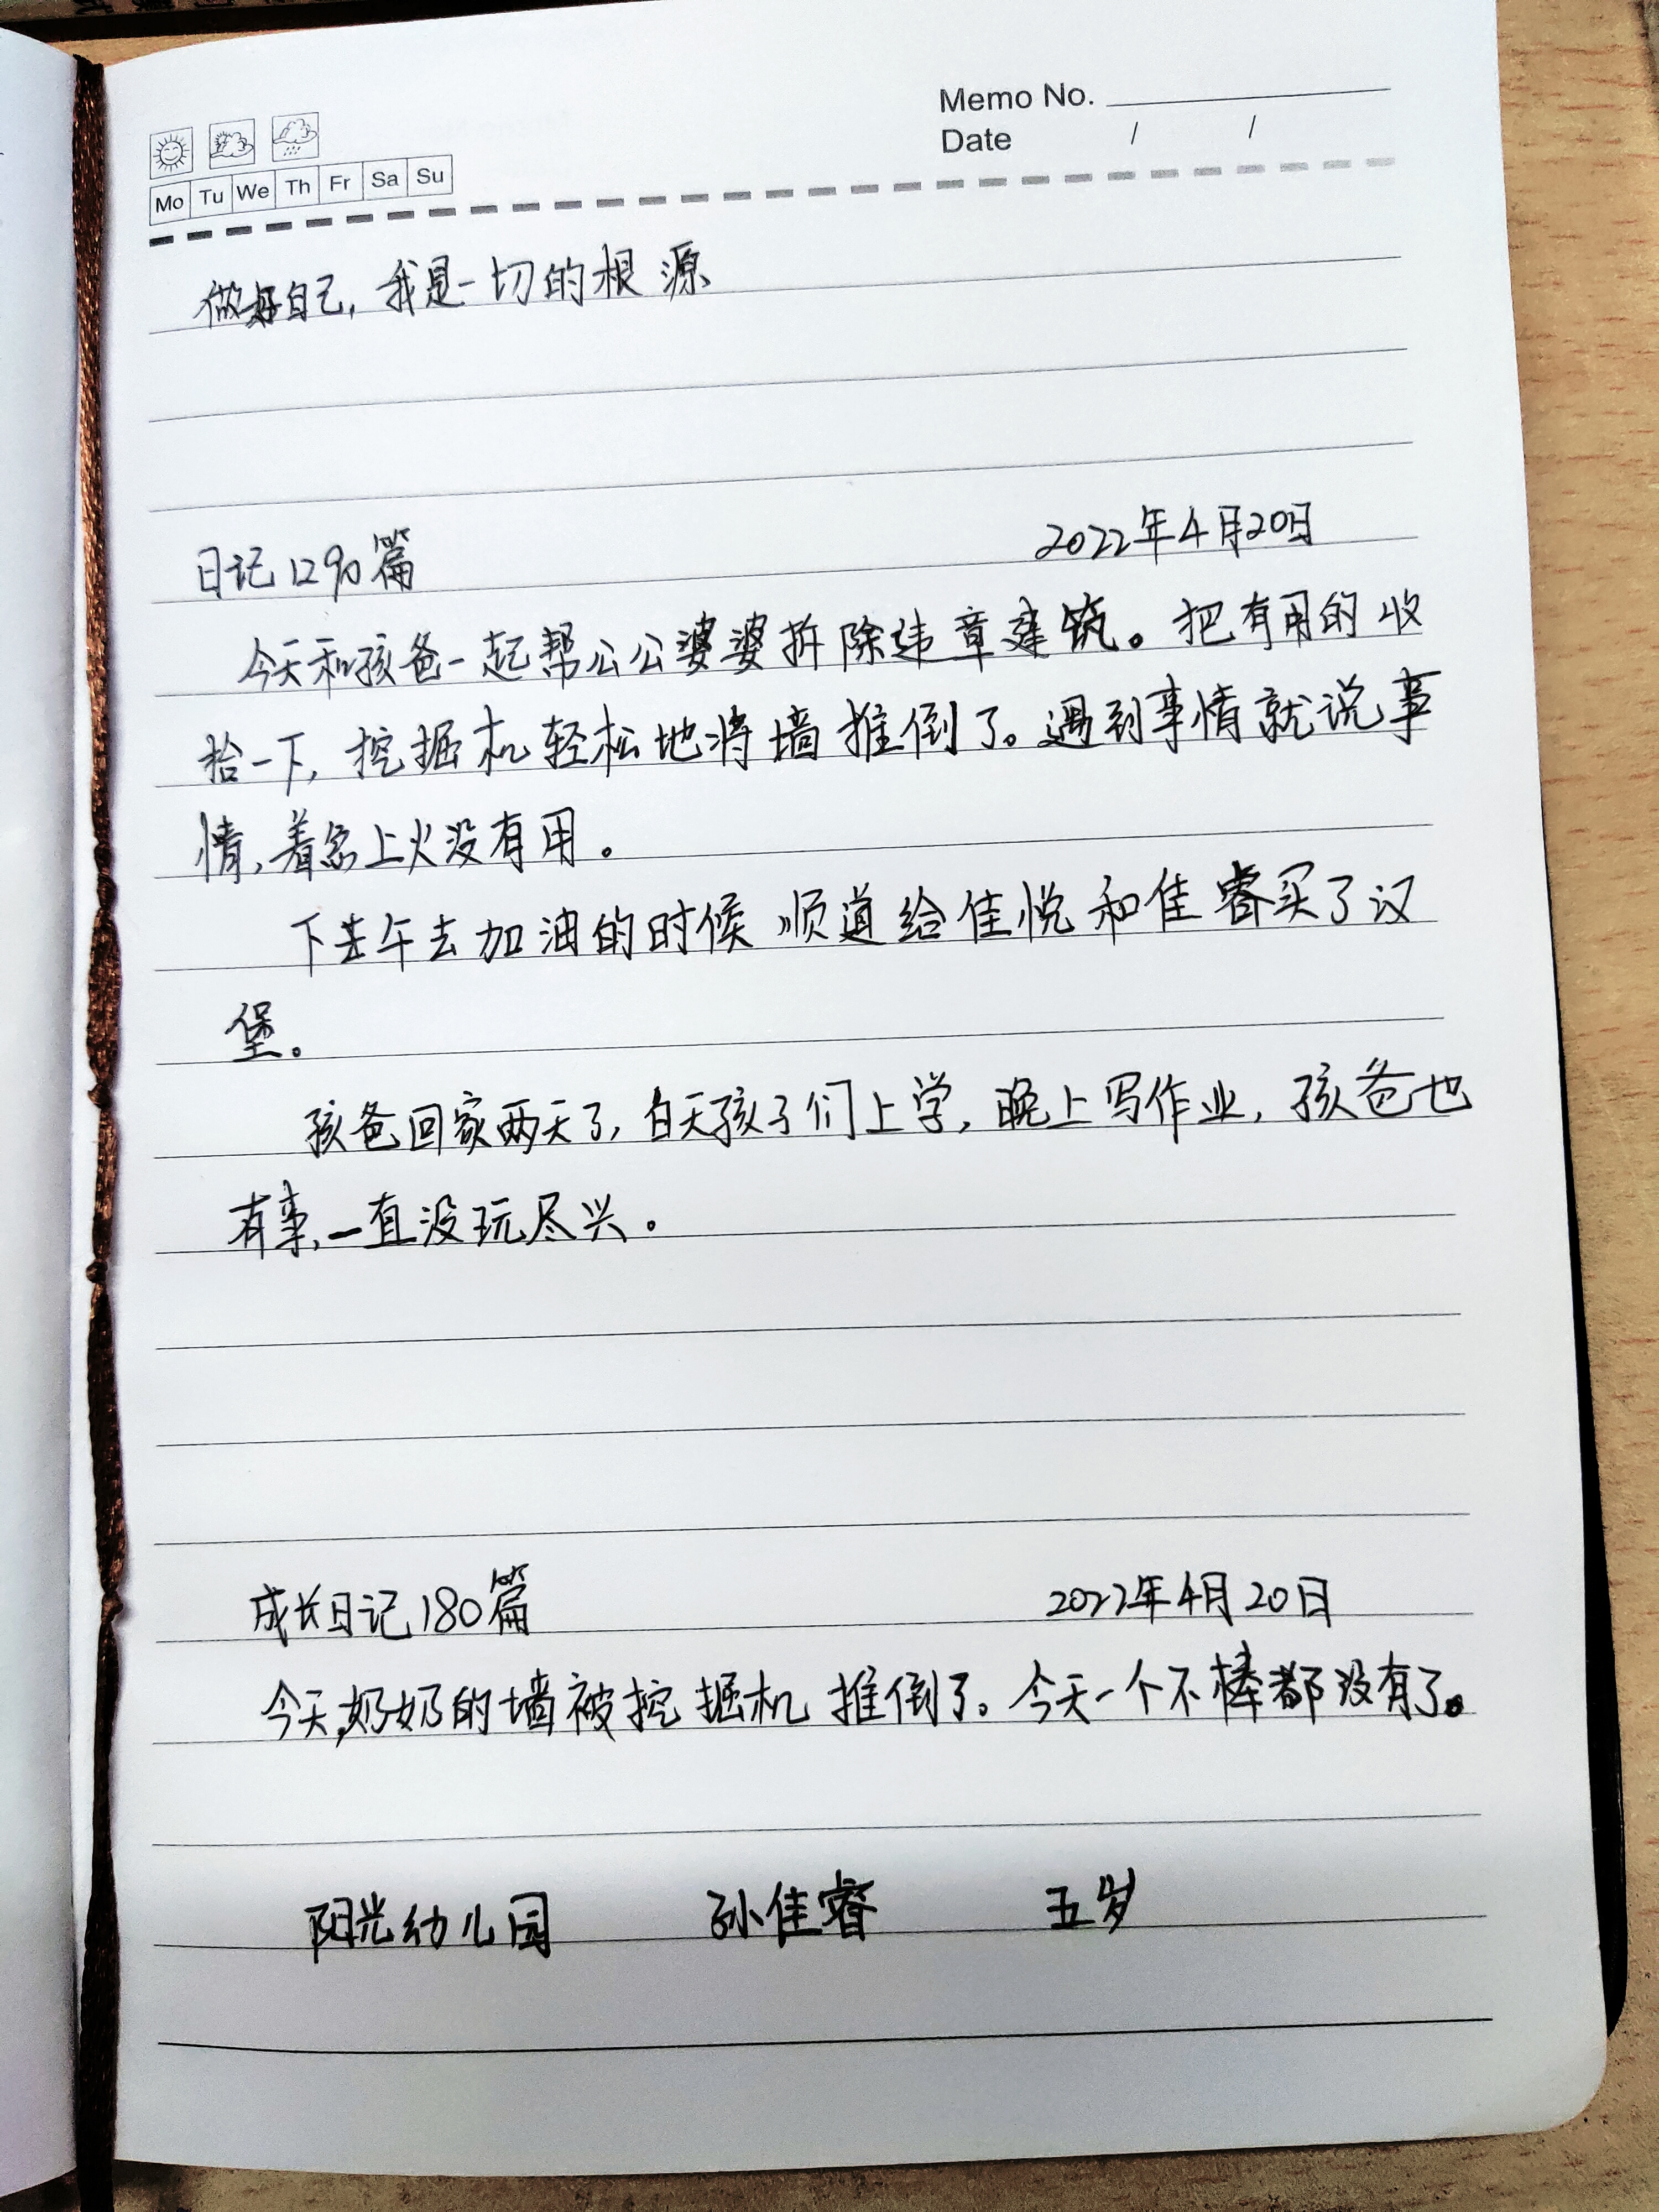 Memo No.
Date / /
Mo Tu We Th Fr Sa Su
做好自己，我是一切的根源
日记1290篇 2022年4月20日
今天和孩爸一起帮公公婆婆拆除违章建筑。把有用的收
拾一下，挖掘机轻松地将墙推倒了。遇到事情就说事
情，着急上火没有用。
下午去加油的时候顺道给佳悦和佳睿买了汉
堡。
孩爸回家两天了，白天孩子们上学，晚上写作业，孩爸也
有事，一直没玩尽兴。
成长日记180篇 2022年4月20日
今天，奶奶的墙被挖掘机推倒了。今天一个不棒都没有了。
阳光幼儿园 孙佳睿 五岁